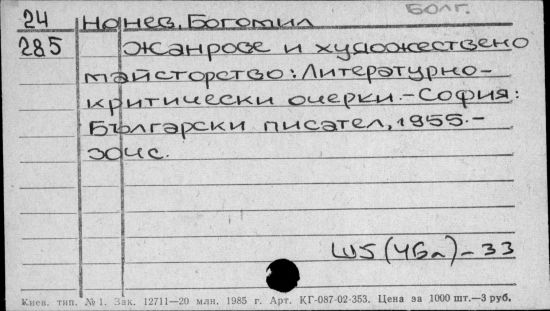 Болг.
24 Нонев, Богомил
285 Жанрове и художествено
майсторство: Литературно-
критически очерки.-София:
Български писател, 1955.-
304с.
Ш5(4Бл)-33
Киев. тип. №1. Зак. 12711—20 млн. 1985 г. Арт. КГ-087-02-353. Цена за 1000 шт.—3 руб.